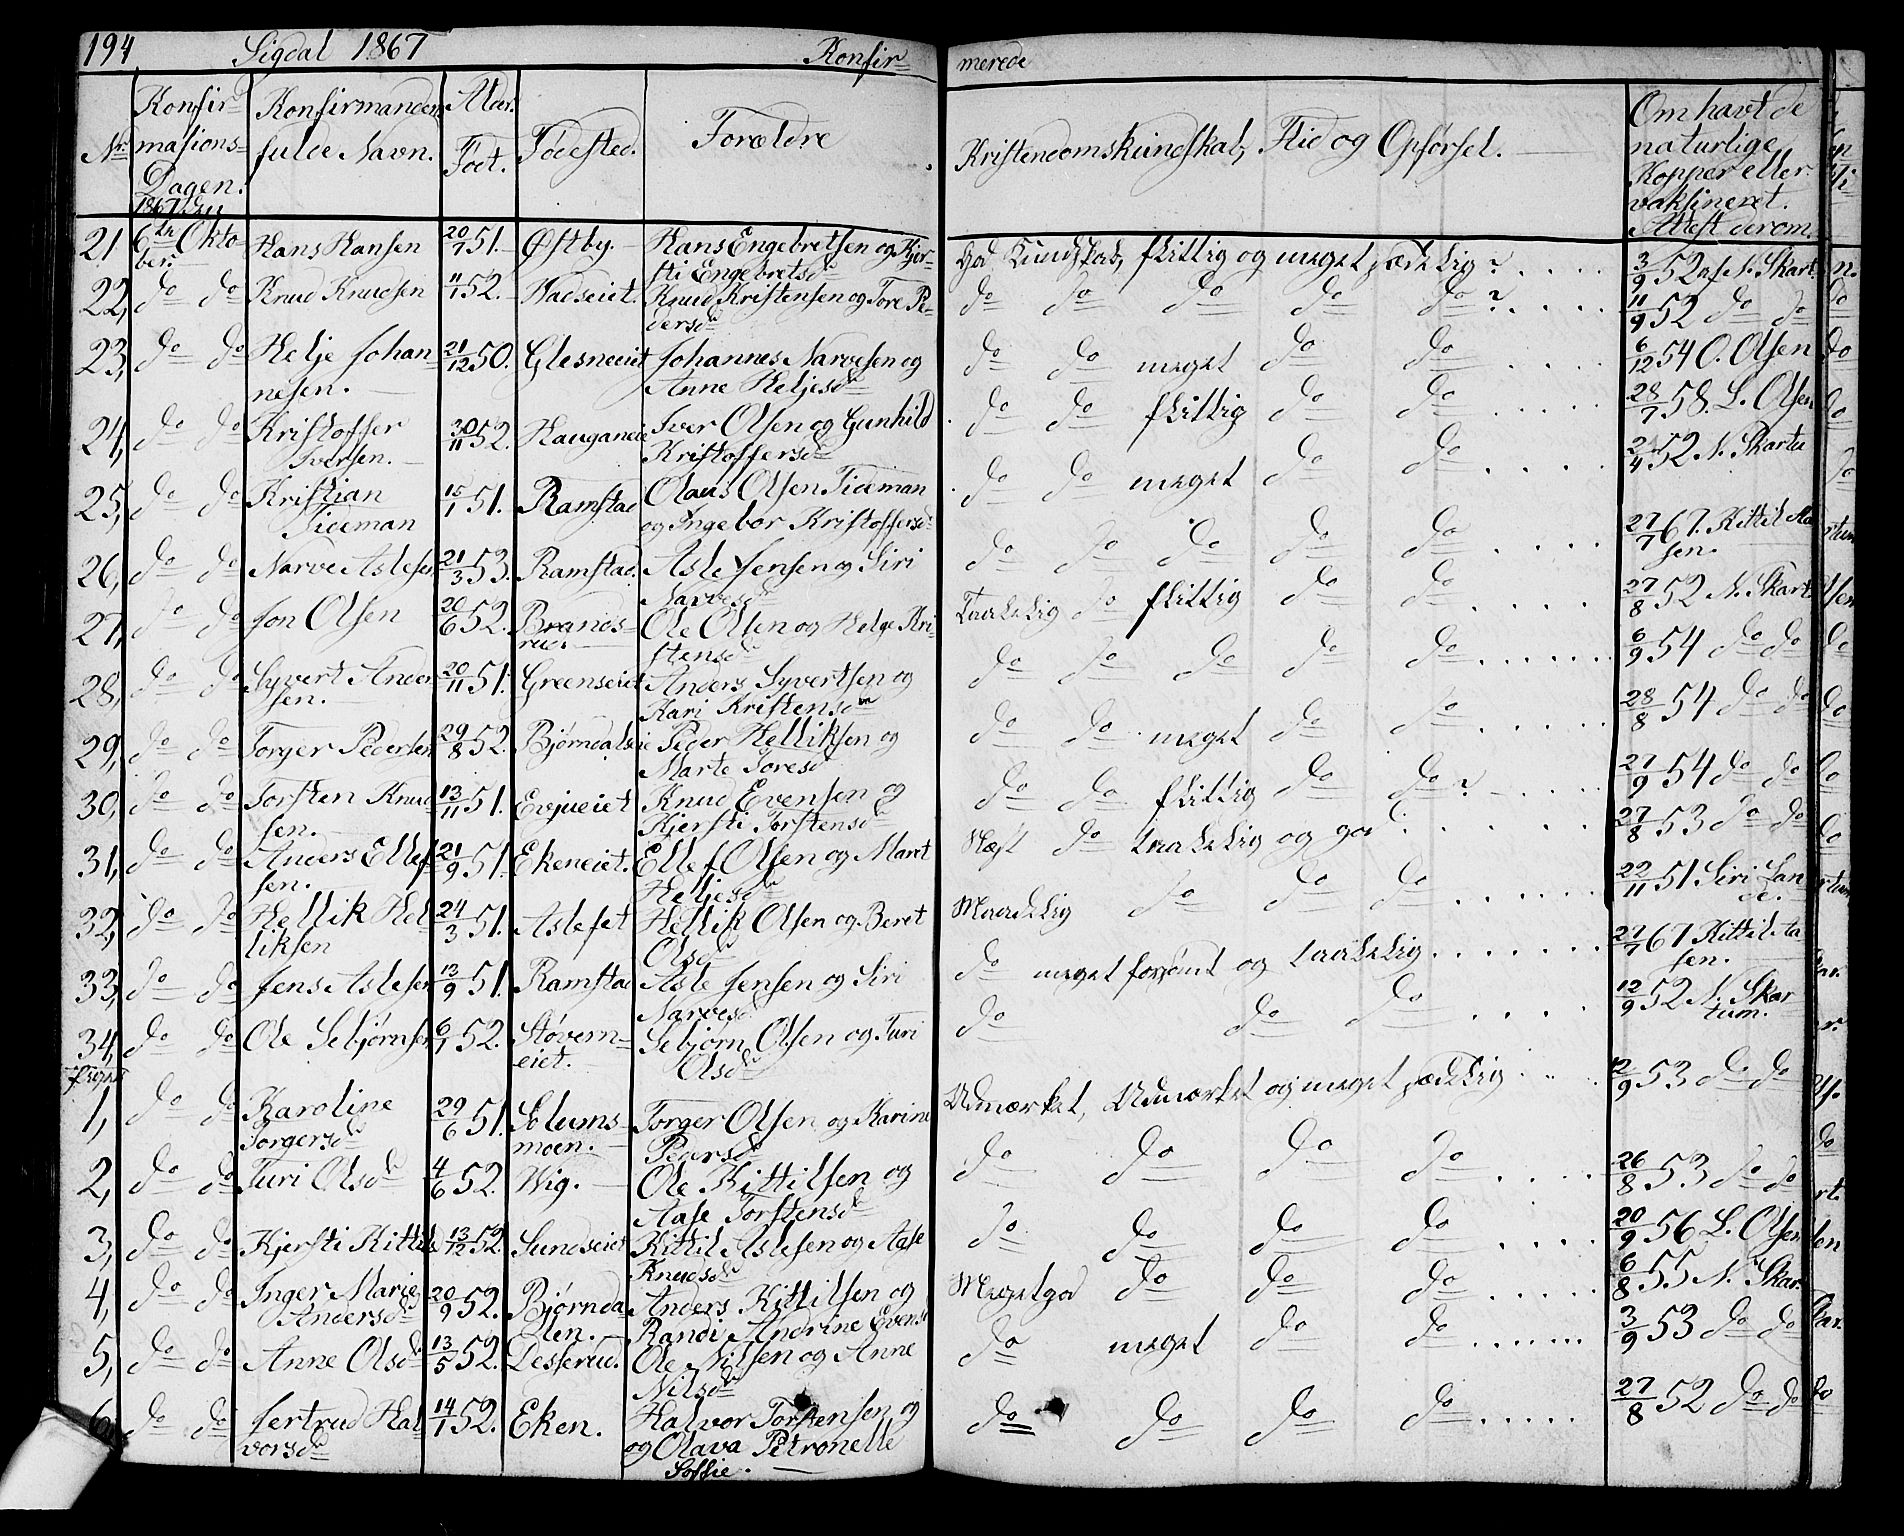 194 Sigdal 1867 Konfir= merede
Nr. Konfirmasions-Dagen. 1867 den Konfirmandens fulde Navn. Alder. Født. Fødested. Forældre Kristendomskundskab, Flid og Opførsel. Om havt de naturlige Kopper eller vaksineret. Attest derom.
21 6te Okto- Hans Hansen 20/7 51. Østby. Hans Engebretsen og Kjer- God Kundskab, flittig og meget sædelig? 3/9 52 af N. Skart
ber. sti Engebretsd.
22, do do Knud Knudsen 11/1 52. Hadseiet. Knud Kristensen og Tore Pe- do do do do do? 11/9 52 do do
dersd.
23, do do Helje Johan= 21/12 50. Glesneeiet Johannes Narvesen og do do meget do do 6/12 54 O. Olsen
nesen. Anne Heljesd.
24, do do Kristoffer 30/11 52. Hauganeie Iver Olsen og Gunhild do do flittig do do 28/7 58. L. Olsen
Iversen. Kristoffersd.
25, do do Kristian 15/1 51. Ramstad Olaus Olsen Tideman do do meget do do 2/4 52 N. Skartu
Tideman og Ingebor Kristoffersd.
26, do do Narve Aslesen 21/3 53. Ramstad. Asle Jensen og Siri do do do do do 27/7 67. Kittil Aa
Narvesd. sen.
27, do do Jon Olsen 20/6 52. Brands- Ole Olsen og Helge Kri- Taalelig do flittig do do 27/8 52 N. Skart
rud. stensd.
28, do do Syvert Ander 20/11 51. Greenseiet Anders Syvertsen og do do do do do 6/9 54 do do
ssen. Kari Kristensd.
29, do do Torger Pedersen 29/8 52. Bjørndalseie Peder Helliksen og do do meget do do 28/8 54 do do
Marte Toresd.
30, do do Torsten Knud 13/11 51. Evjueiet Knud Evensen og do do flittig do do? 27/9 54 do do
sen. Kjersti Torstensd.
31, do do Anders Ellef 21/9 51. Ekeneiet. Ellef Olsen og Maret Næst do taalelig og god 27/8 53 do do
sen. Heljesd.
32, do do Hellik Hel 24/3 51. Aslefet Hellik Olsen og Beret Maadelig do do do 22/11 51 Siri San
liksen Olsd. de.
33, do do Jens Aslesen 13/9 51. Ramstad Asle Jensen og Siri do meget forsømt og taalelig 27/7 67 Kittil Aa
Narvesd. sen.
34, do do Ole Sebjørnsen 6/1 52. Støvern= Sebjørn Olsen og Turi do do do 12/9 52 N. Skar
eiet. Olsd. tum.
1, do do Karoline 29/6 51. Solums- Torger Olsen og Karine Udmærket, Udmærket og meget sædelig 12/9 53 do do
Torgersd. moen. Pedersd.
2, do do Turi Olsd. 4/6 52. Wig. Ole Kittilsen og do do do do 26/8 53 do do
Aase Torstensd.
3, do do Kjersti Kittils 13/12 52. Sundseiet Kittil Aslesen og Aase do do do do 20/9 56 L. Olsen
Knudsd.
4, do do Inger Marie 20/9 52. Bjørnda Anders Kittilsen og Meget god do do do 6/8 55 N. Skar
Andersd. len. Randi Andrine Evensd
5, do do Anne Olsd. 13/5 52. Desserud. Ole Nilsen og Anne do meget do do 3/9 53 do do
Nilsd.
6, do do Jertrud Hal 14/1 52. Eken. Halvor Torstensen og do do do do 27/8 52 do do
vorsd. og Olava Petronelle
Soffie.